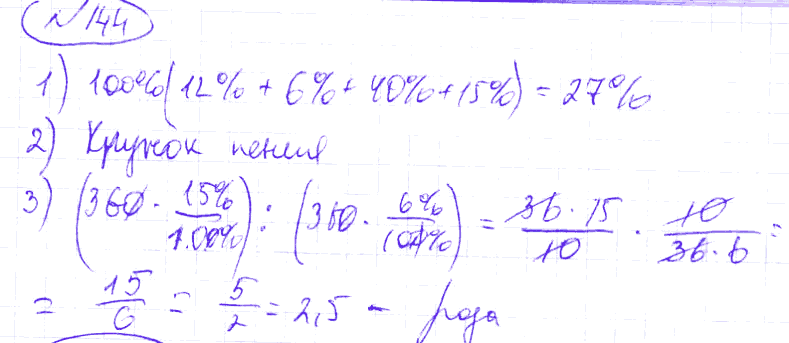 №144
1) 100%(12% + 6% + 40% + 15%) = 27%
2) Кружок пения
3) (360 · 15%/100%) : (360 · 6%/100%) = 36 · 15/10 · 10/36 · 6 =
= 15/6 = 5/2 = 2,5 - раза